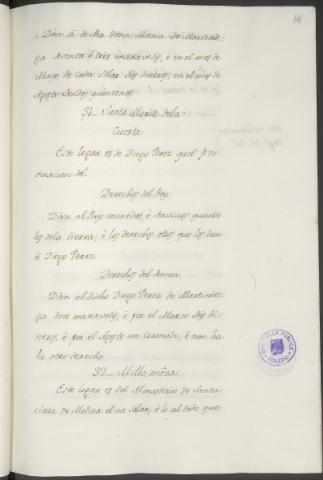 Dan á dicha doña María de Martinie-
ga setenta é tres maravedis, é en el mes de
Mayo de cada solar seis dineros; en el mes de
Agosto sendos quinceenes.
31_ Santa María de la
Cuesta
Este logar es de Diego Perez que l fizo
donacion del
Derechos del Rey
Dan al Rey monedas, é servicios quando
los de la tierra; é los derechos otros que los dan
á Diego Perez.
Derechos del Señor
Dan al dicho Diego Perez de Martinie-
ga doce maravedis, é por el Marzo seis di-
neros, é por el Agosto un Coronado, é non ha
hi otro derecho.
32_ Villa mósa
Este logar es del Monasterio de Santa
Clara de Medina el un Solar, é lo al todo que